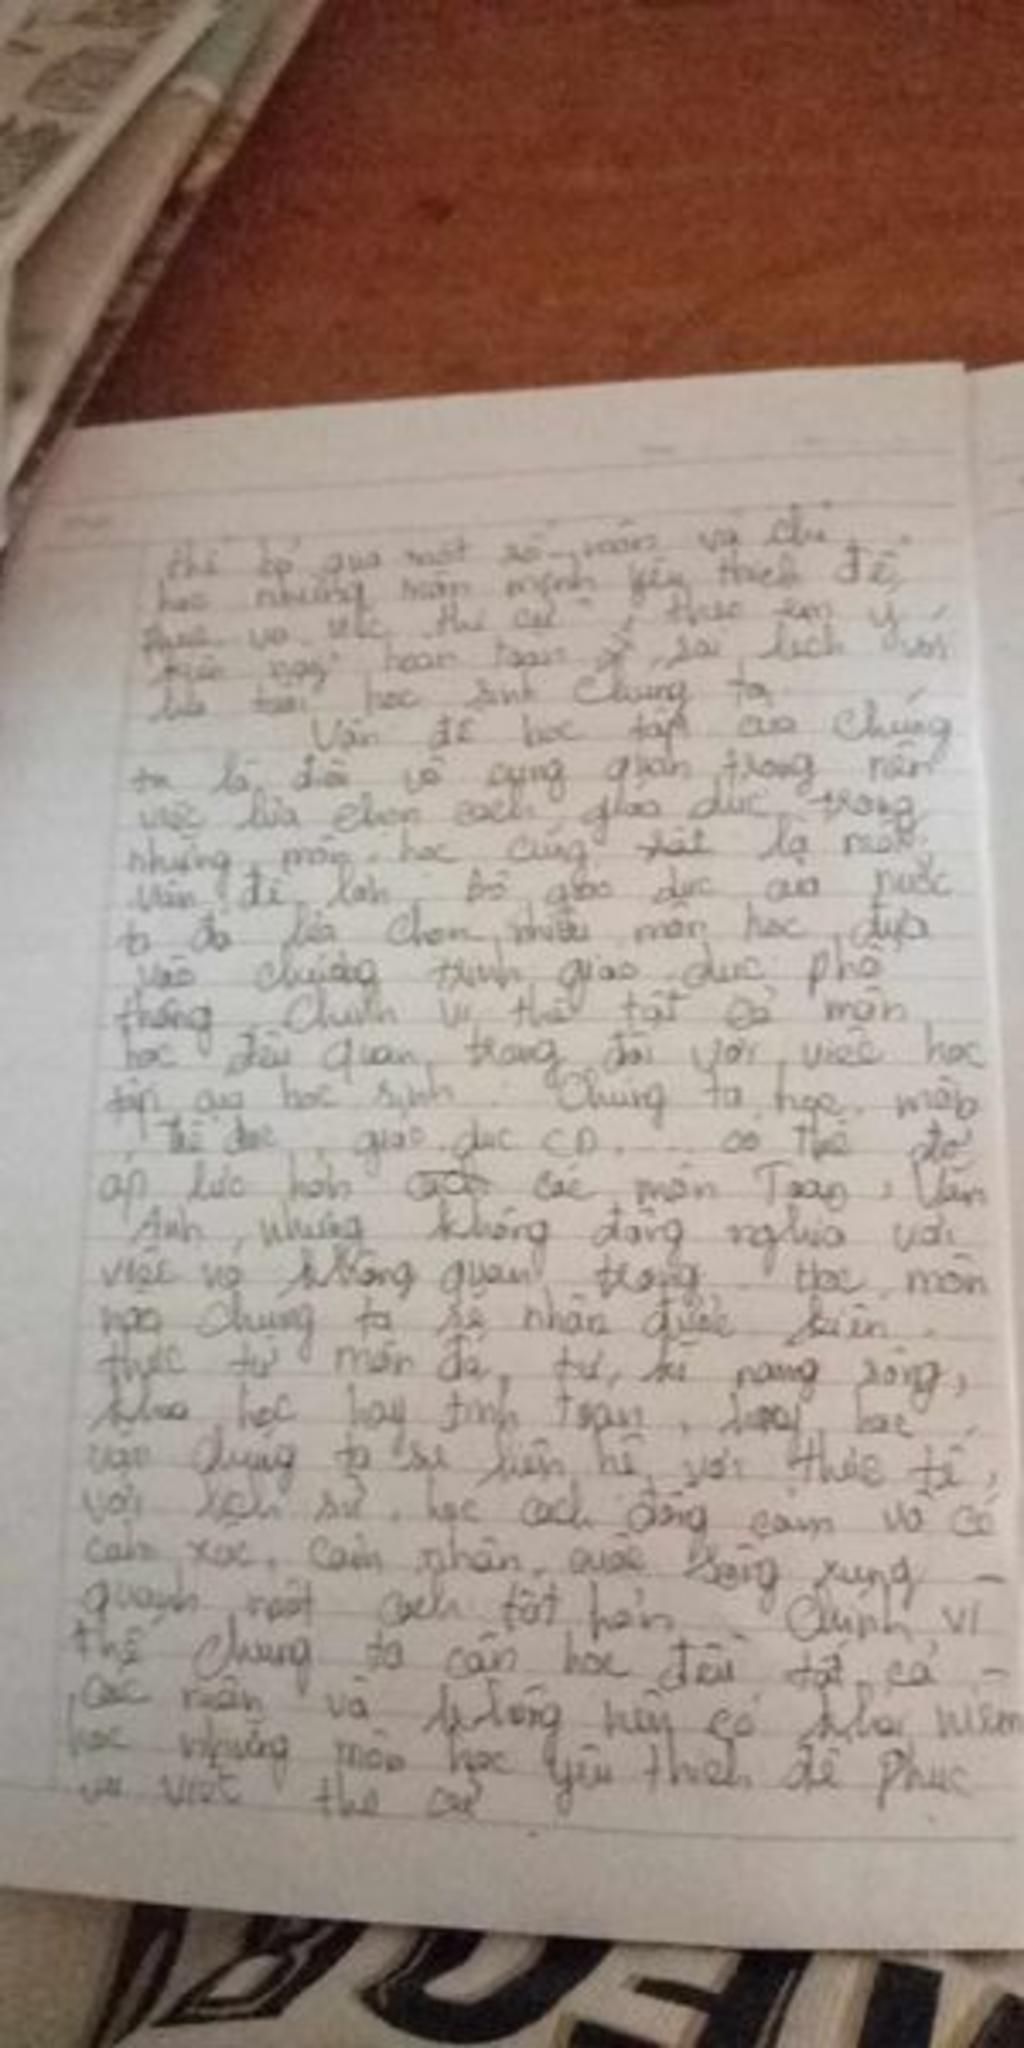 thể bỏ qua một số môn và chỉ
học những môn mình yêu thích để
phục vụ việc thi cử, theo em ý
kiến này hoàn toàn sai lệch với
lứa tuổi học sinh chúng ta
Vấn đề học tập của chúng
ta là điều vô cùng quan trọng nên
việc lựa chọn cách giáo dục trong
những môn học cũng là một
vấn đề lớn bộ giáo dục của nước
ta đã lựa chọn nhiều môn học dựa
vào chương trình giáo dục phổ
thông. Chính vì thế tất cả môn
học đều quan trọng đối với việc học
tập của học sinh. Chúng ta học môn
thể dục, giáo dục CD, .... có thể đỡ
áp lực hơn các môn Toán, Văn
Anh, nhưng không đồng nghĩa với
việc nó không quan trọng. Học môn
nào chúng ta sẽ nhận được kiến
thức từ môn đó, từ kĩ năng sống,
khoa học hay tính toán, học
vận dụng ta sẽ liên hệ với thực tế,
với lịch sử, học cách đồng cảm và có
cảm xúc, cảm nhận cuộc sống xung -
quanh một cách tốt hơn. Chính vì
thế chúng ta cần học đều tất cả -
các môn và không nên có khái niệm
học những môn học yêu thích để phục
vụ việc thi cử